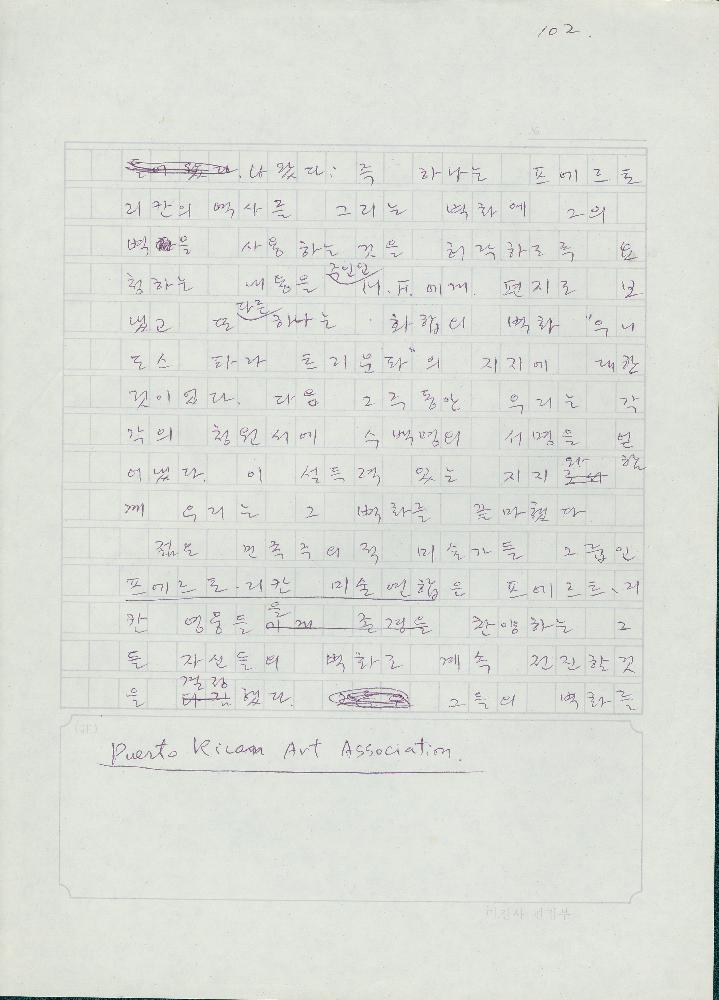 102.
나왔다: 즉 하나는 프에르토
리칸의 역사를 그리는 벽화에 그의
벽을 사용하는 것을 허락하도록 요
청하는 내용을 H.F.에게 편지로 보
냈고 또 다른 하나는 화합의 벽화 "우니
도스 파라 트리운화"의 지지에 대한
것이었다. 다음 2주동안 우리는 각
각의 청원서에 수백명의 서명을 받
어냈다. 이 설득력 있는 지지와 함
께 우리는 그 벽화를 끝마쳤다
젊은 민족주의적 미술가들 그룹인
프에르토·리칸 미술연합은 프에르토·리
칸 영웅들을 찬양하는 그
들 자신들의 벽화로 계속 전진할것
을 결정했다. 그들의 벽화를
Puerto Rican Art Association.